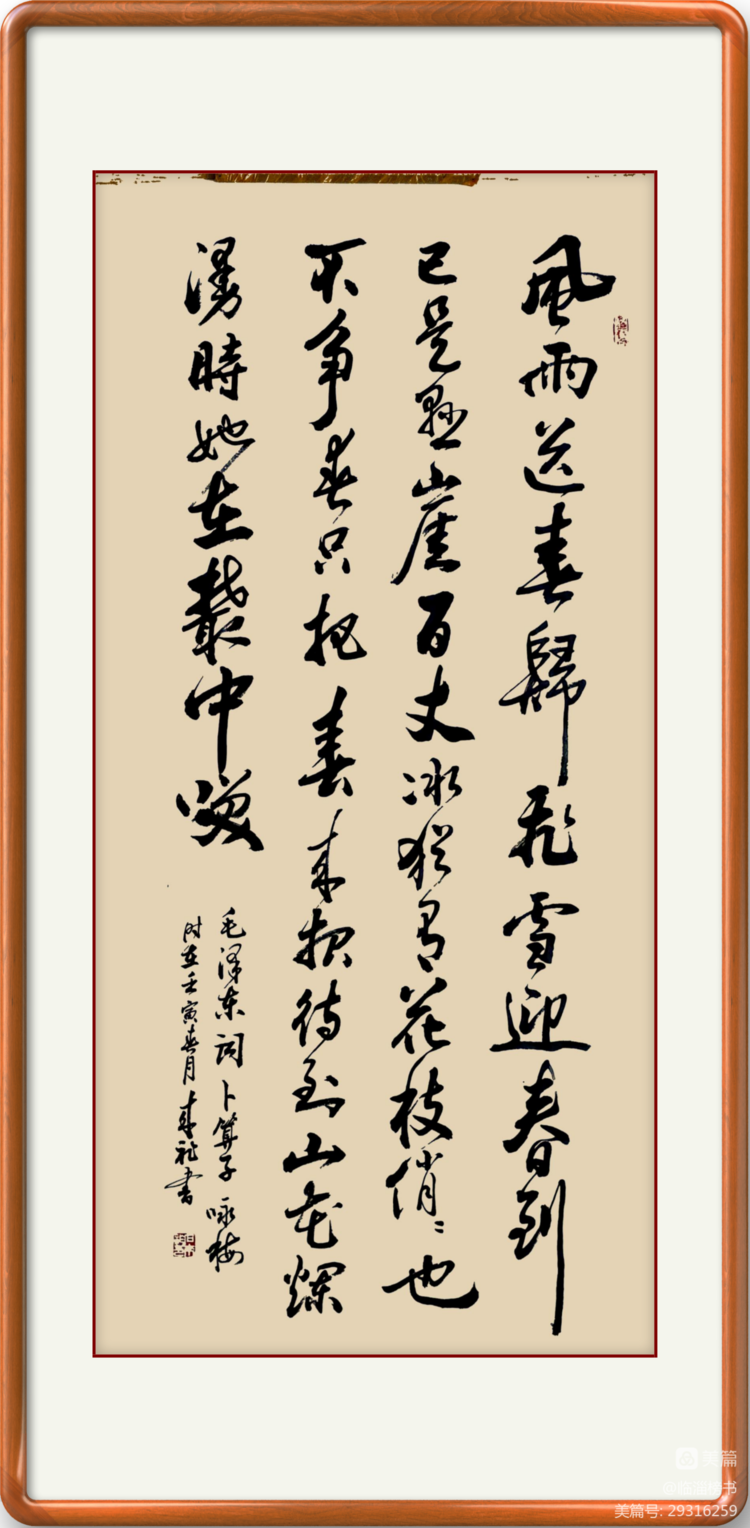 風雨送春歸飛雪迎春到
已是懸崖百丈冰猶有花枝俏〻也
不争春只把春来报待到山花爛
漫時她在叢中咲
毛泽东词卜算子咏梅
时在壬寅春月书
美篇
美篇号: 29316259